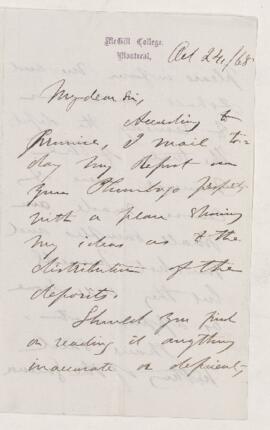 McGill College,
Montreal,
Oct 24./68
My dear Sir,
According to
promise, I mail to-
day my Report on
your Plumbago property
with a plan showing
my ideas as to the
distribution of the
deposits.
Should you find
on reading it anything
inaccurate or deficient,